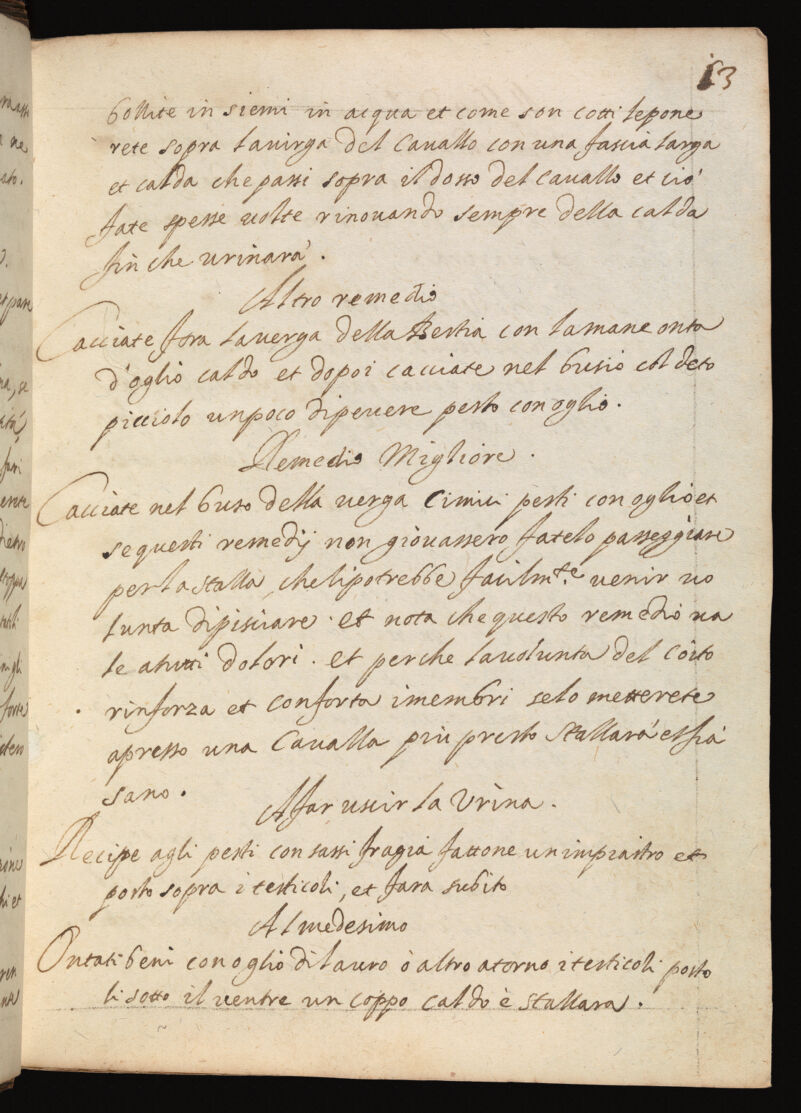 53
bollite in siemi in acqua et come son cotti lepone
rete sopra lauirga del Cauallo con una fascia larga
et calda che passi sopra il dosso del Cauallo et ciò
fate spesse uolte rinouando sempre della calda
fin che urinarà.
Altro remedio
Cacciate fora lauerga della Bestia con lamane onta
d'oglio caldo et dopoi cacciate nel busio col deto
picciolo unpoco dipeuere pesto con oglio.
Remedio Migliore.
Cacciate nel buso della uerga Cimici pesti con oglio et
sequesti remedij non giouassero fatelo passeggiare
per la stalla, che lipotrebbe facilm.te uenir uo
lunta dipisciare. et nota che questo remedio ua
le atutti dolori. et perche lauolunta del Coito
rinforza et conforta imembri selo metterete
apresso una Caualla piu presto stallarà et sià
sano.
A far uscir la Vrina.
Recipe agli pesti con sassi fragia fattone un impiastro et
posto sopra i testicoli, et fara subito
Al medesimo
Ontati beni con oglio di lauro ò altro atorno i testicoli posto
li sotto il uentre un coppo caldo è stallara.